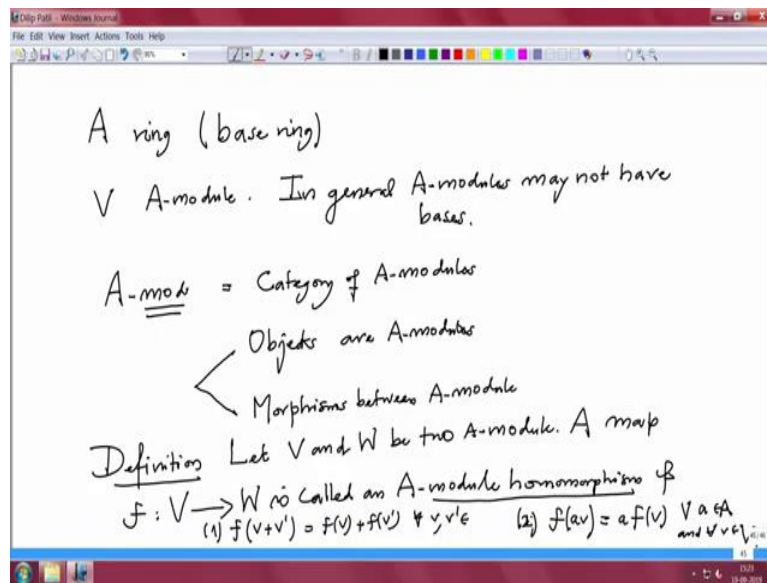 Dilip Patil - Windows Journal
File Edit View Insert Actions Tools Help
A ring (base ring)
V A-module. In general A-modules may not have
bases.
A-mod = Category of A-modules
Objects are A-modules
Morphisms between A-module
Definition Let V and W be two A-module. A map
f : V → W is called an A-module homomorphism if
(1) f(v+v') = f(v)+f(v') ∀ v,v'∈ (2) f(av) = a f(v) ∀ a ∈ A
and ∀ v ∈ V
45
15:23